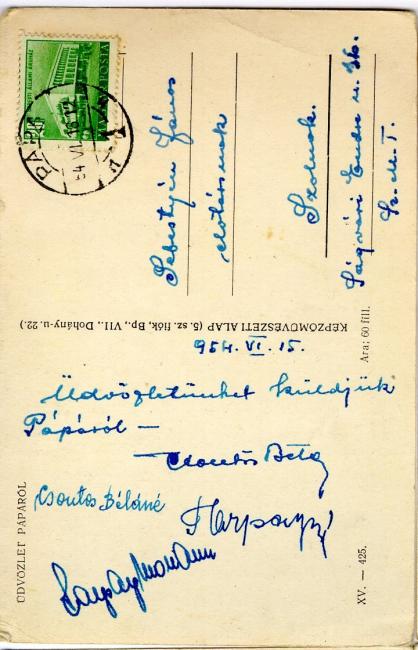 MAGYAR POSTA
PÁPA
54 VI. 16 12
Sebestyén János
előtársnak
Szolnok.
Ságvári Endre u. 36.
Sz. M. T.
KÉPZŐMŰVÉSZETI ALAP (5. sz. fiók, Bp., VII., Dohány-u. 22.)
Ára: 60 fill.
954. VI. 15.
Üdvözletünket küldjük
Pápáról —
— Csontos Béla
Csontos Béláné
ÜDVÖZLET PÁPÁRÓL
XV. — 425.